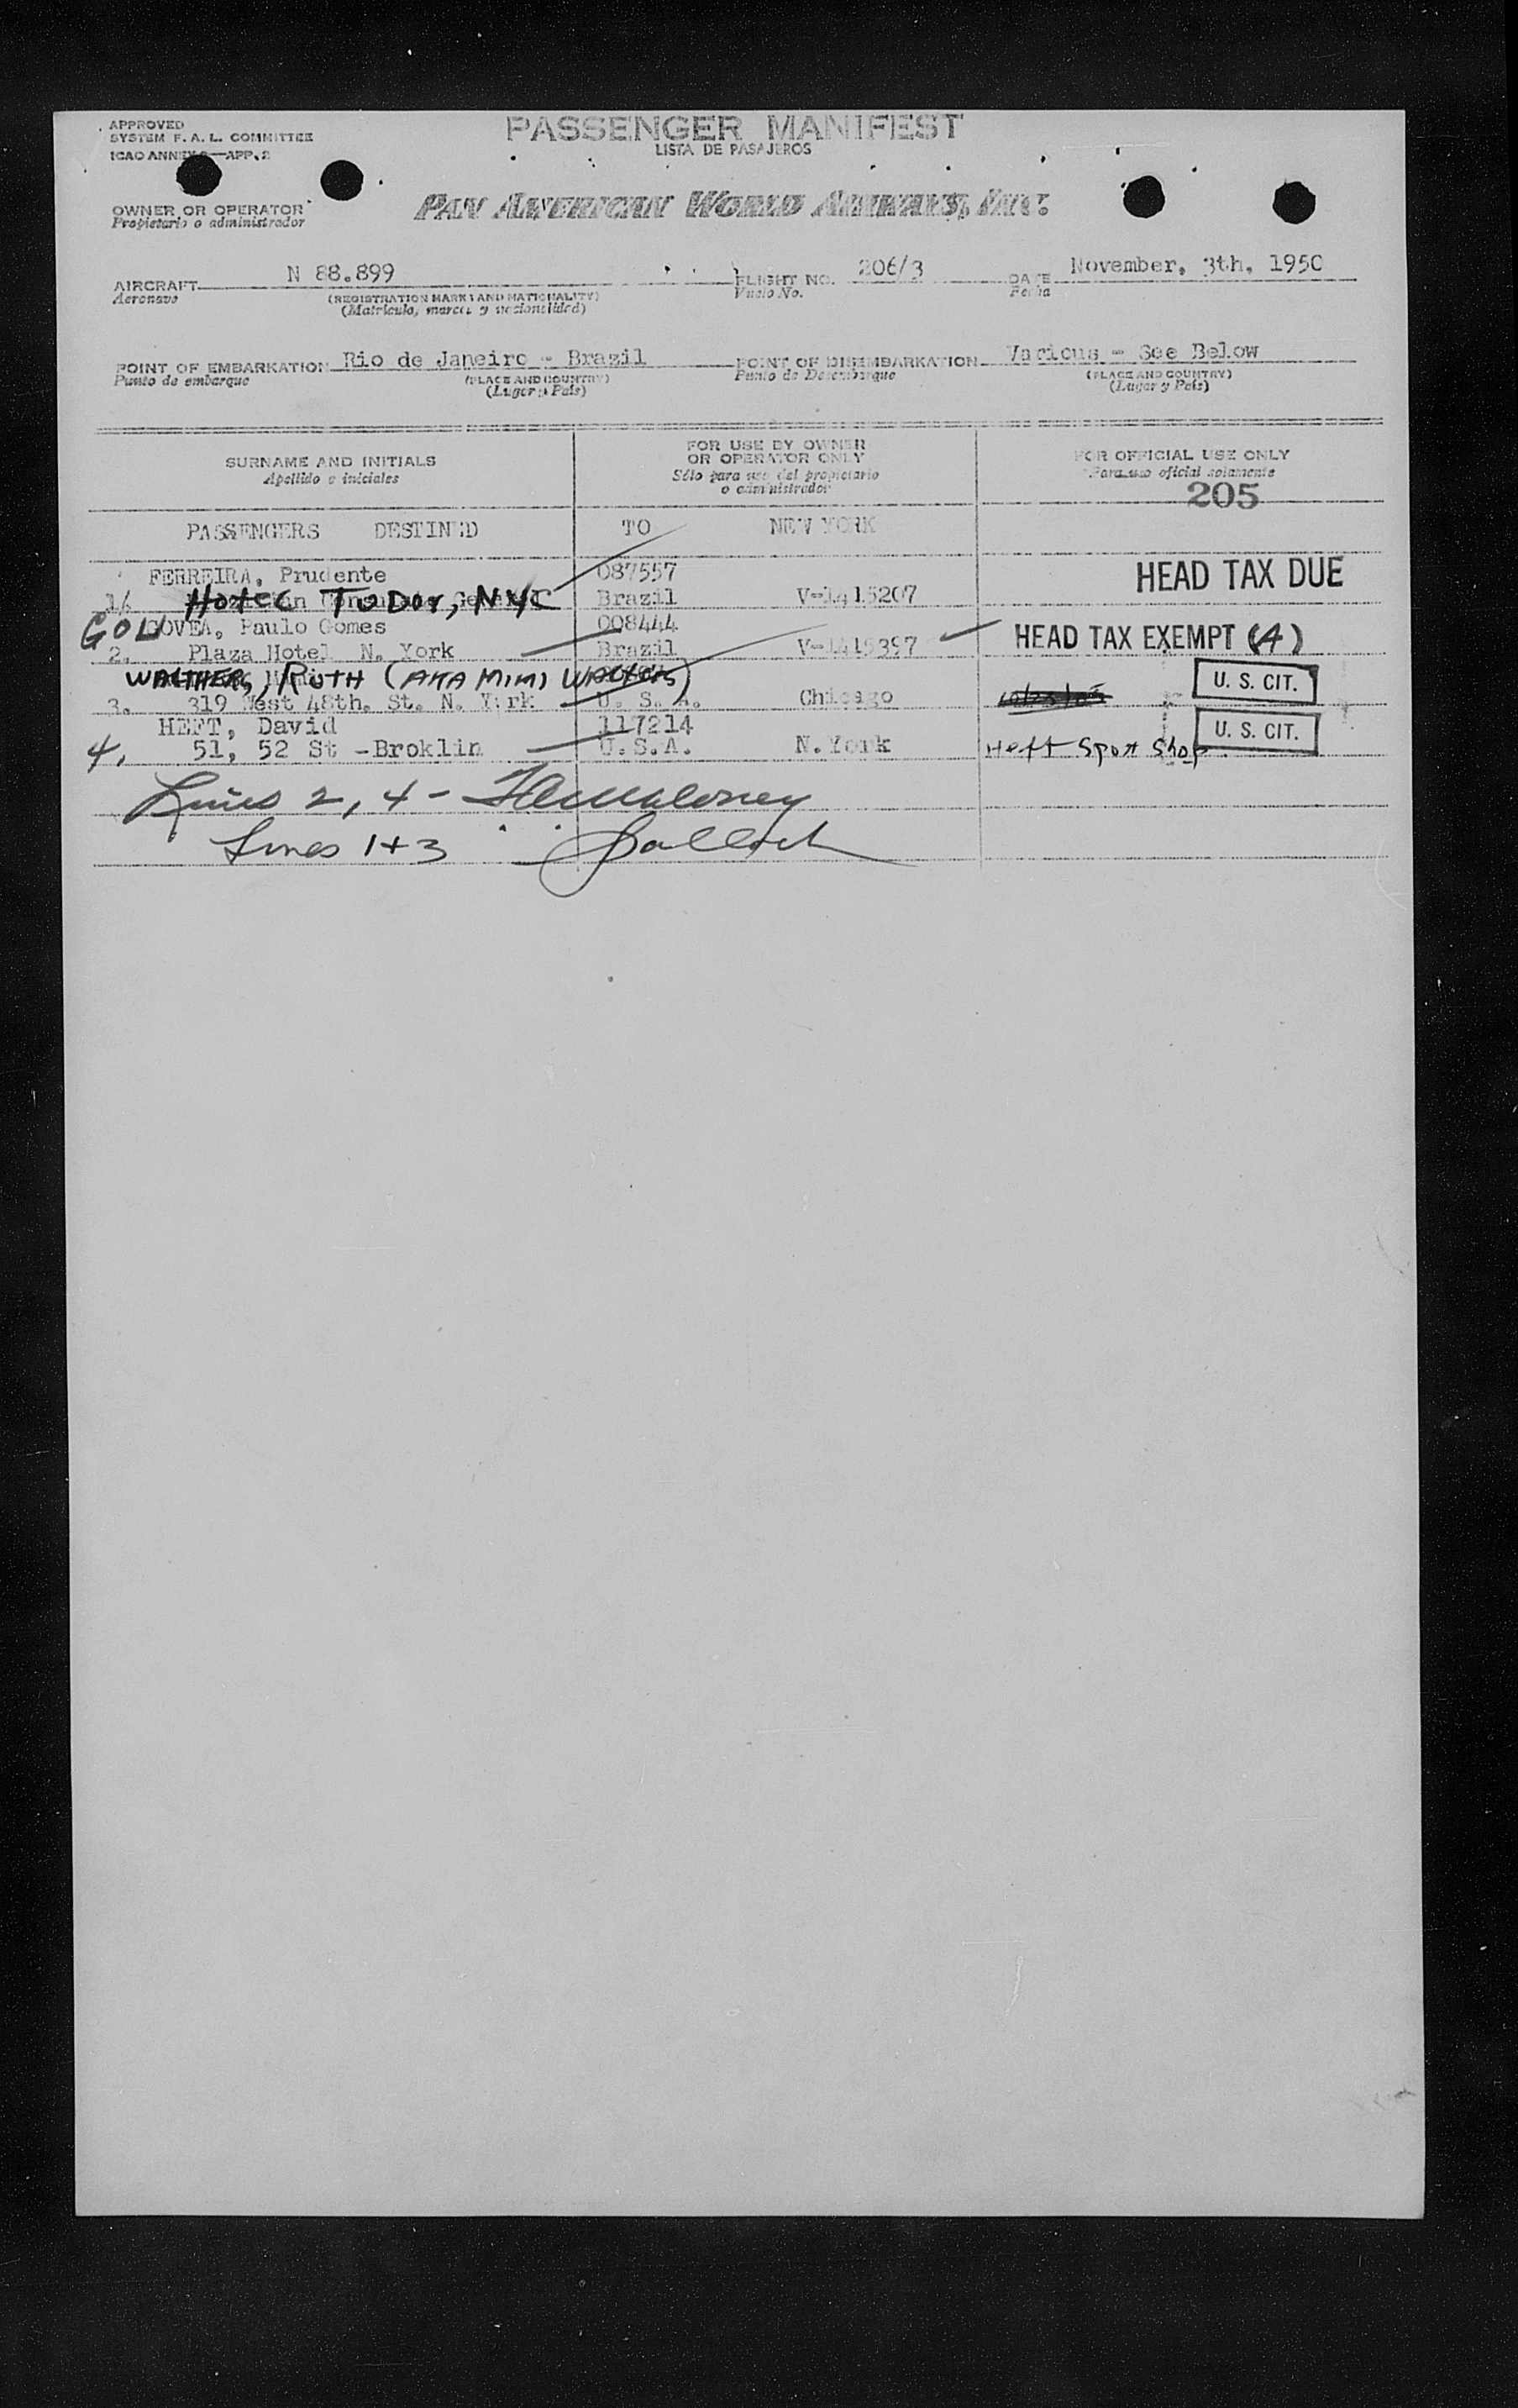 APPROVED
SYSTEM F. A. L. COMMITTEE
ICAO ANNEX 9—APP. 2
PASSENGER MANIFEST
LISTA DE PASAJEROS
OWNER OR OPERATOR
Propietario o administrador
PAN AMERICAN WORLD AIRWAYS, INC.
AIRCRAFT N 88.899 FLIGHT NO. 206/3 DATE November, 3th, 1950
Aeronave (REGISTRATION MARKS AND NATIONALITY) Vuelo No. Fecha
(Matricula, marcas y nacionalidad)
POINT OF EMBARKATION Rio de Janeiro - Brazil POINT OF DISEMBARKATION Various - See Below
Punto de embarque (PLACE AND COUNTRY) Punto de Desembarque (PLACE AND COUNTRY)
(Lugar y Pais) (Lugar y Pais)
SURNAME AND INITIALS FOR USE BY OWNER OR OPERATOR ONLY FOR OFFICIAL USE ONLY
Apellido e iniciales Sólo para uso del propietario o administrador Para uso oficial solamente
205
PASSENGERS DESTINED TO NEW YORK
FERREIRA, Prudente 087557 HEAD TAX DUE
1. HOTEL TUDOR, NYC Brazil V-1415207
GOU GOVEA, Paulo Gomes 008444
2. Plaza Hotel N. York Brazil V-1415397 HEAD TAX EXEMPT (A)
WALTHERS, RUTH (AKA MIMI WALTERS) U. S. CIT.
3. 319 West 48th. St. N. York U. S. A. Chicago
HEFT, David 117214 U. S. CIT.
4. 51, 52 St -Broklin U.S.A. N. York Heft Sport Shop
Lines 2, 4 - Maloney
Lines 1+3